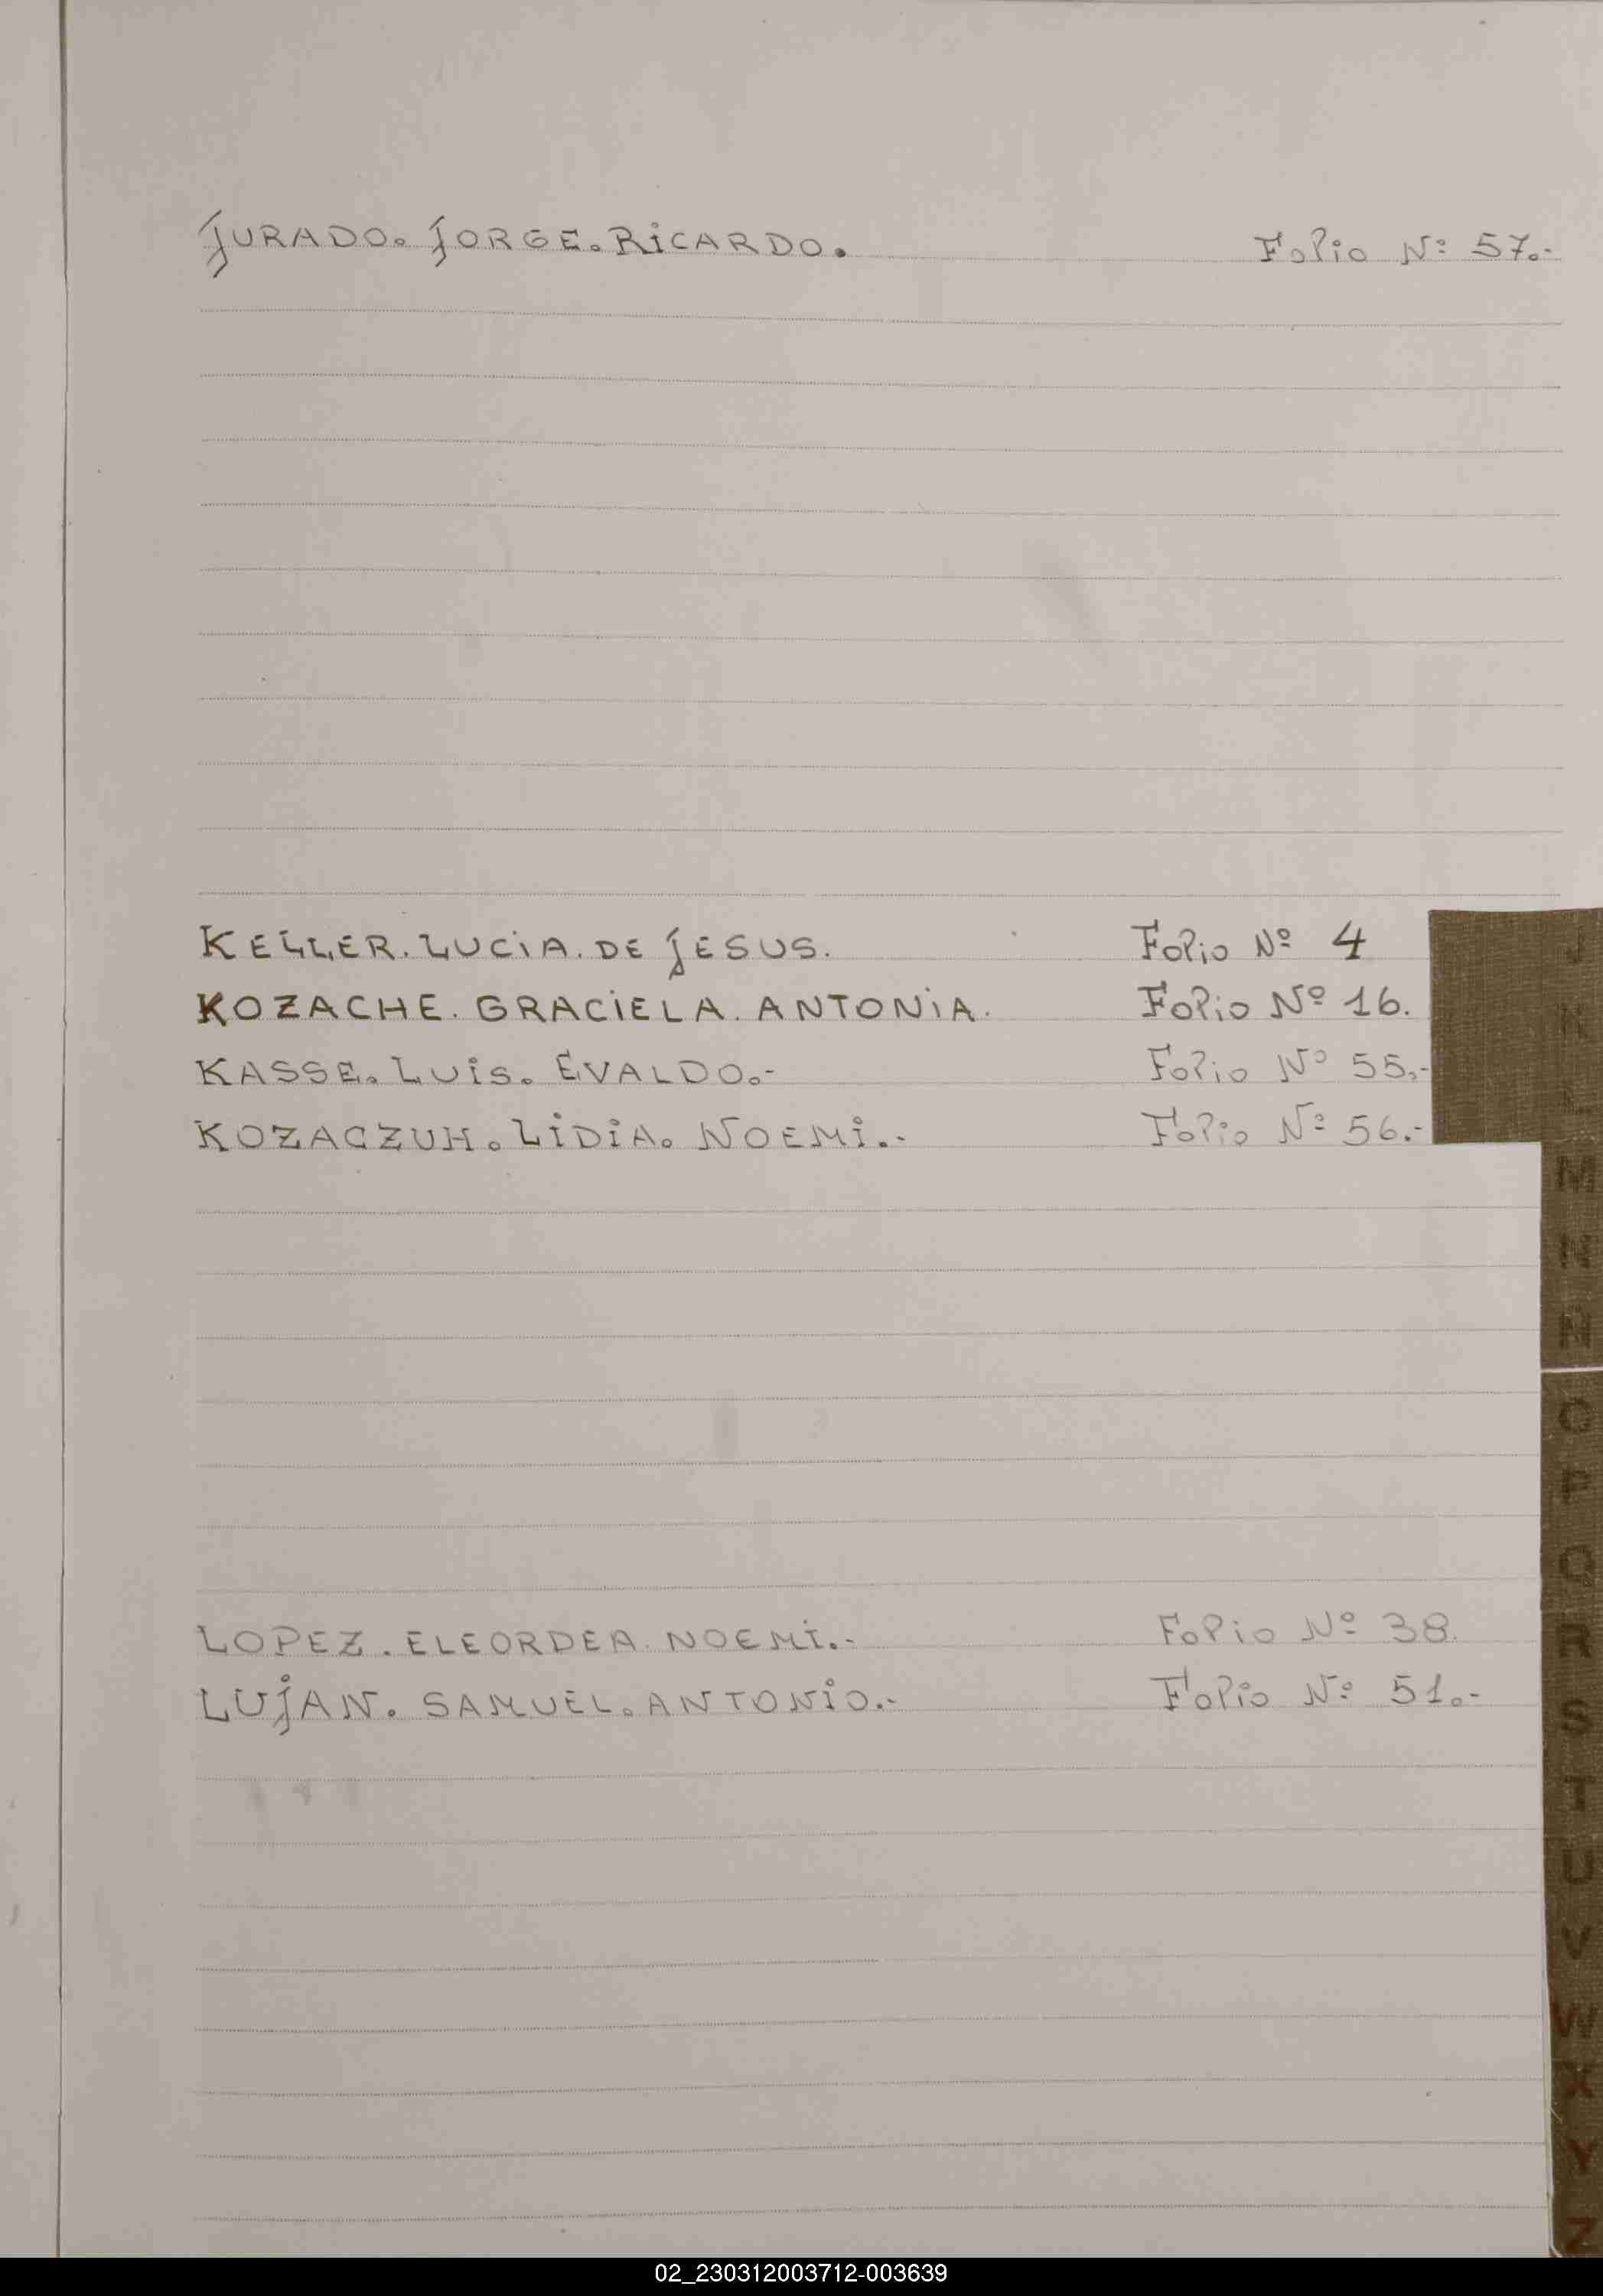 JURADO. JORGE. RiCARDO. Folio Nº 57.-
KELLER. LUCiA. DE JESUS. Folio Nº 4
KOZACHE. GRACiELA. ANTONiA. Folio Nº 16.
KASSE. LUiS. EVALDO.- Folio Nº 55.-
KOZACZUH. LiDiA. NOEMi.- Folio Nº 56.-
LOPEZ. ELEORDEA. NOEMi.- Folio Nº 38.
LUjAN. SAMUEL. ANTONiO.- Folio Nº 51.-
J
K
L
M
N
Ñ
O
P
Q
R
S
T
U
V
W
X
Y
Z
02_230312003712-003639